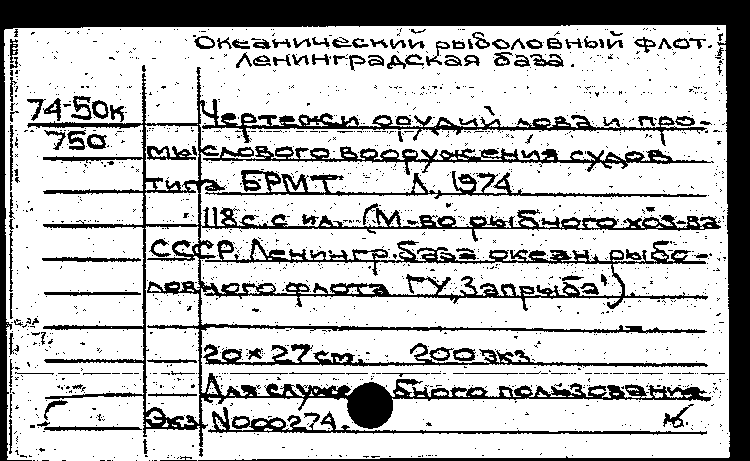 Океанический рыболовный флот.
Ленинградская база.
74-50к Чертежи орудий лова и про-
750 мыслового вооружения судов
типа БРМТ. Л., 1974.
118 с. с ил. (М-во рыбного хоз-ва
СССР. Ленингр. база океан. рыбо-
ловного флота ГУ „Запрыба").
20×27 см. 200 экз
Для служебного пользования
Экз. N000274.